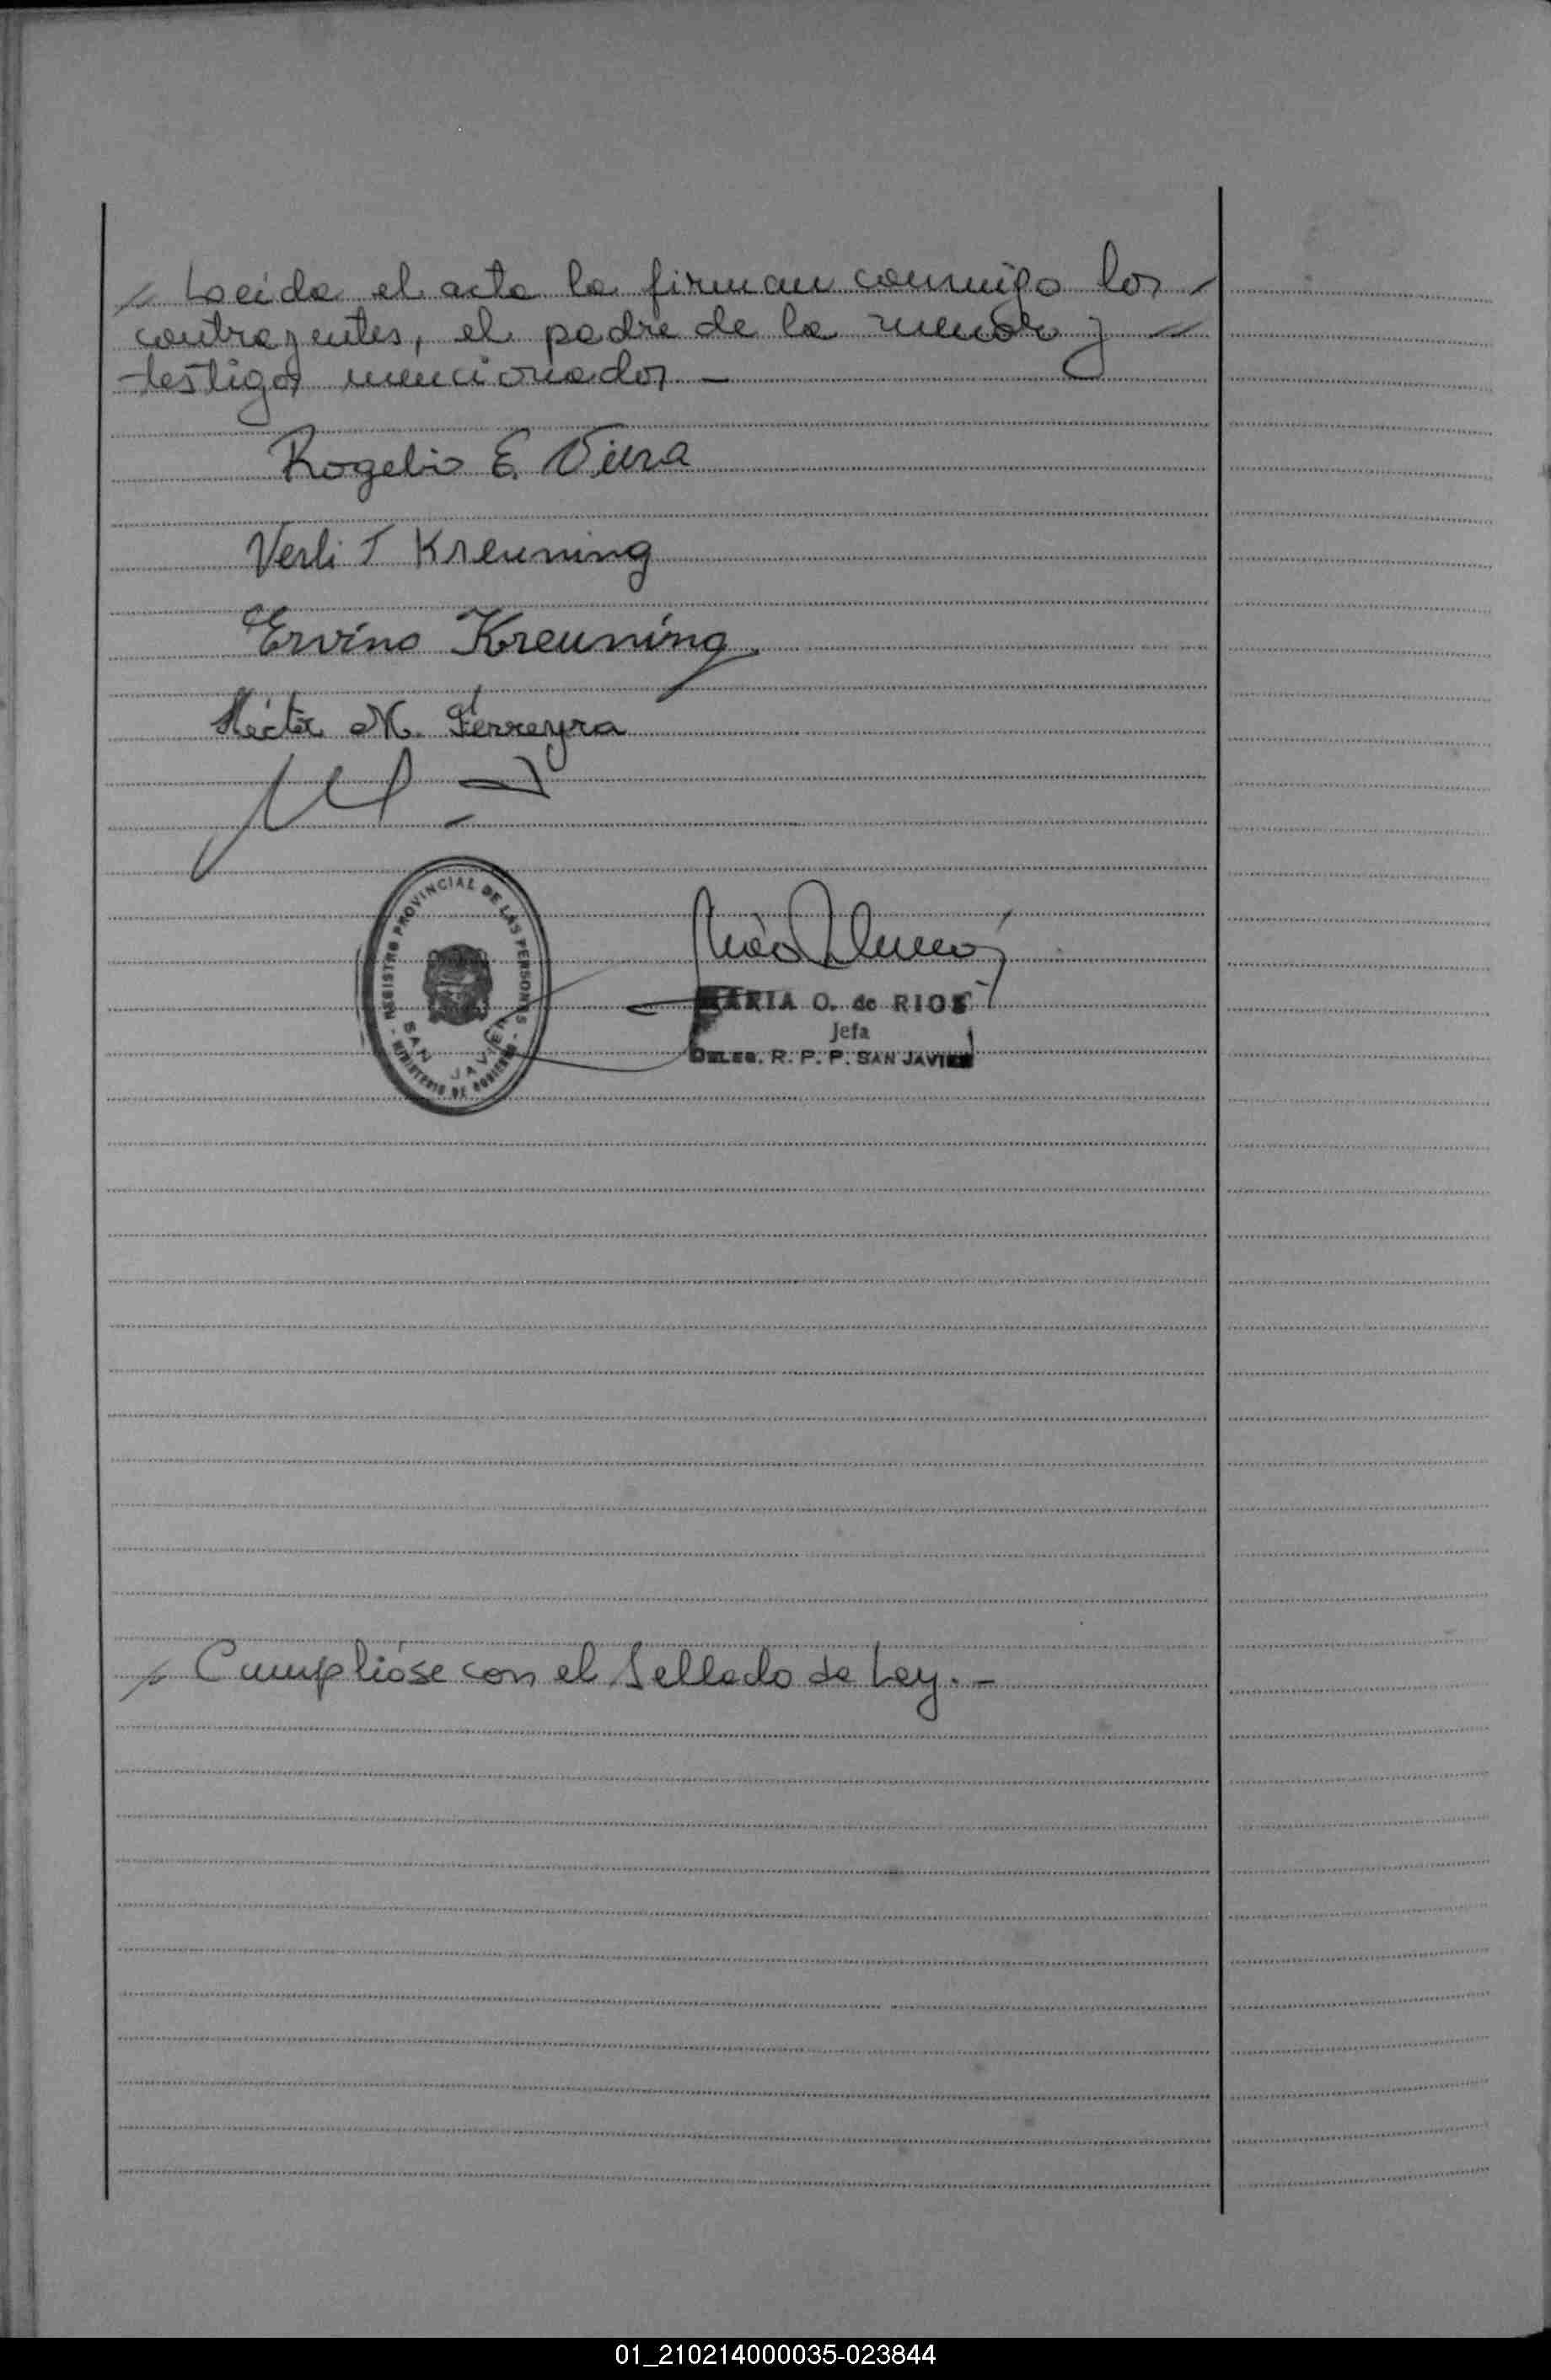 Leída el acta la firman conmigo los
contrayentes, el padre de la menor y
testigos mencionados -
Rogelio E. Viera
Verli T Kreuning
Ervino Kreuning
Héctor M. Ferreyra
REGISTRO PROVINCIAL DE LAS PERSONAS
SAN JAVIER
MINISTERIO DE GOBIERNO
MARIA O. de RIOS
Jefa
DELEG. R. P. P. SAN JAVIER
Cumplióse con el Sellado de Ley. -
01_210214000035-023844